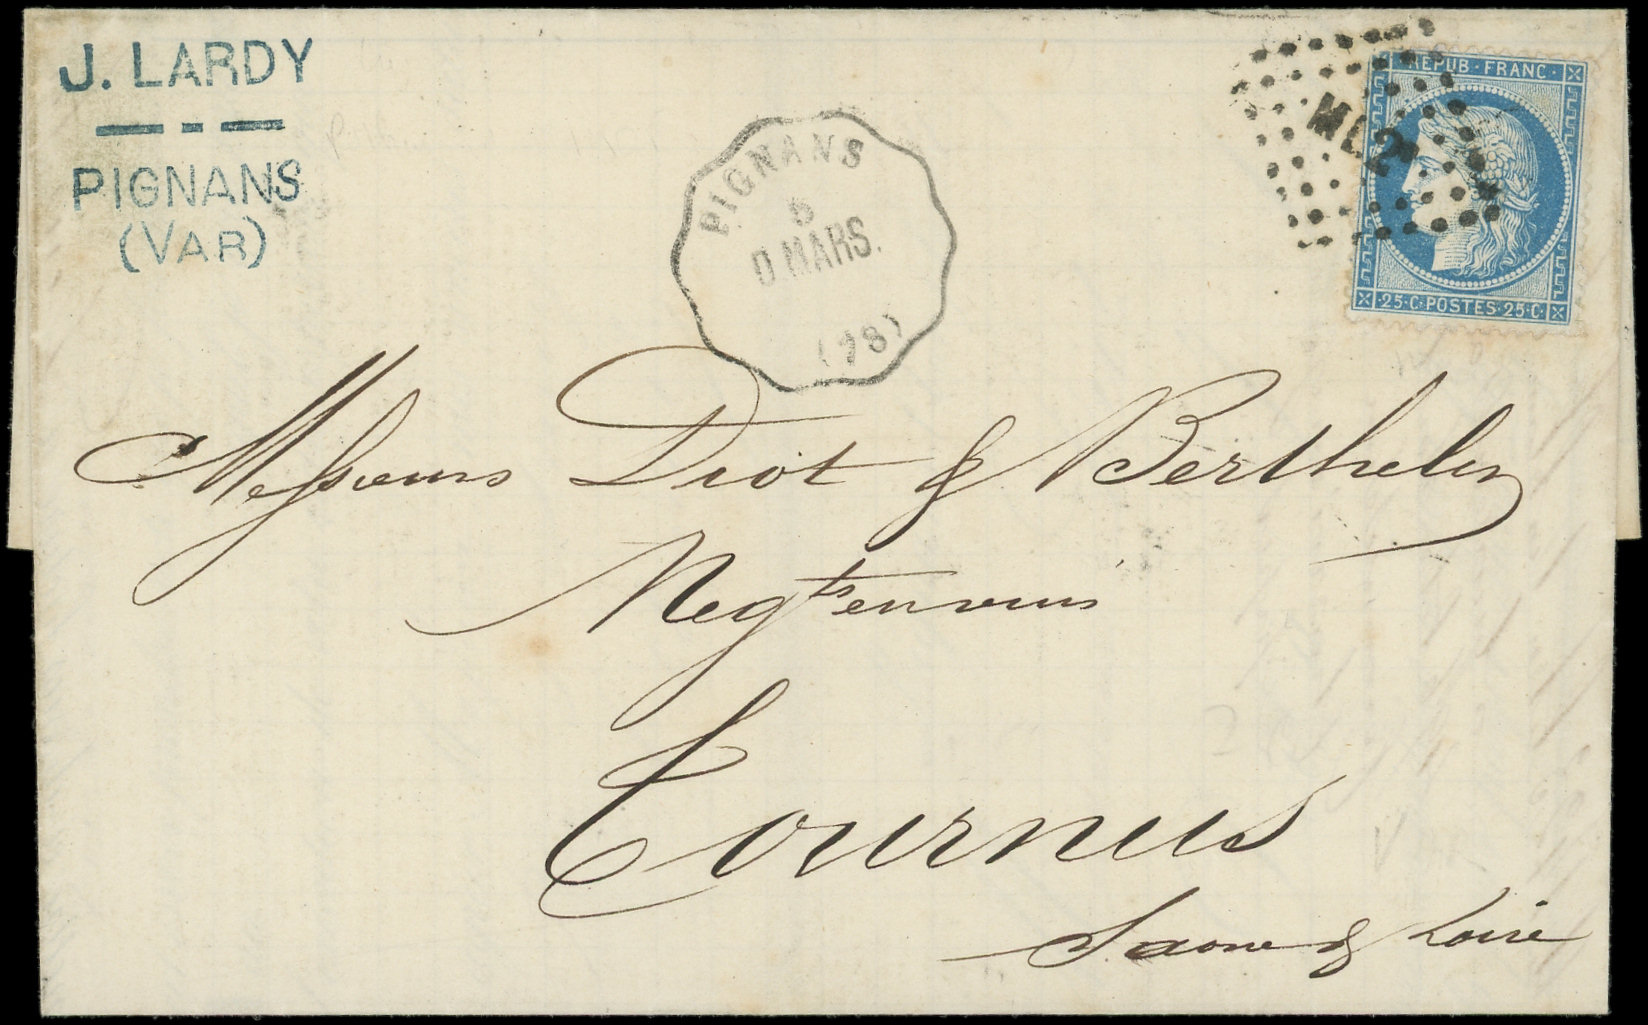 J. LARDY
PIGNANS
(VAR)
PIGNANS
5
D MARS.
(78)
REPUB·FRANC·
ML2°
25·C·POSTES·25·C·
Messieurs Diot & Berthelin
Negts en vins
Tournus
Saone & Loire